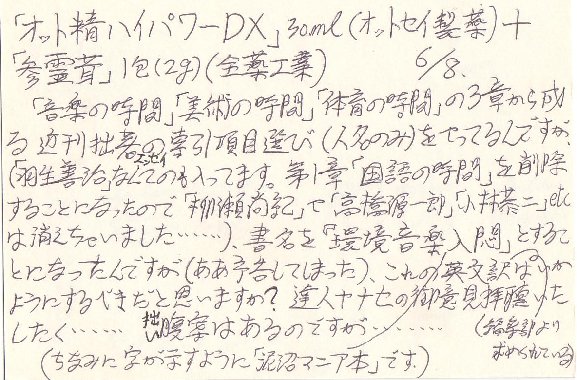 「オット精ハイパワーDX」30ml(オットセイ製薬)+
「参霊茸」1包(2g)(全薬工業) 6/8.
「音楽の時間」「美術の時間」「体育の時間」の3章から成
る近刊拙著の索引項目選び(人名のみ)をやってるんですが、
エッセイ
(「羽生善治」なんてのも入ってます。第1章「国語の時間」を削除
することになったので「柳瀬尚紀」や「高橋源一郎」「小林恭二」etc
は消えちゃいました……)、書名を「環境音楽入悶」とするこ
とになったんですが(ああ予告してしまった)、これの英文訳はいか
ようにするべきだと思いますか? 達人ヤナセの御意見拝聴いた
したく…… 拙い腹案はあるのですが………
(編集部より
求められている)
(ちなみに字が示すように「泥沼マニア本」です。)